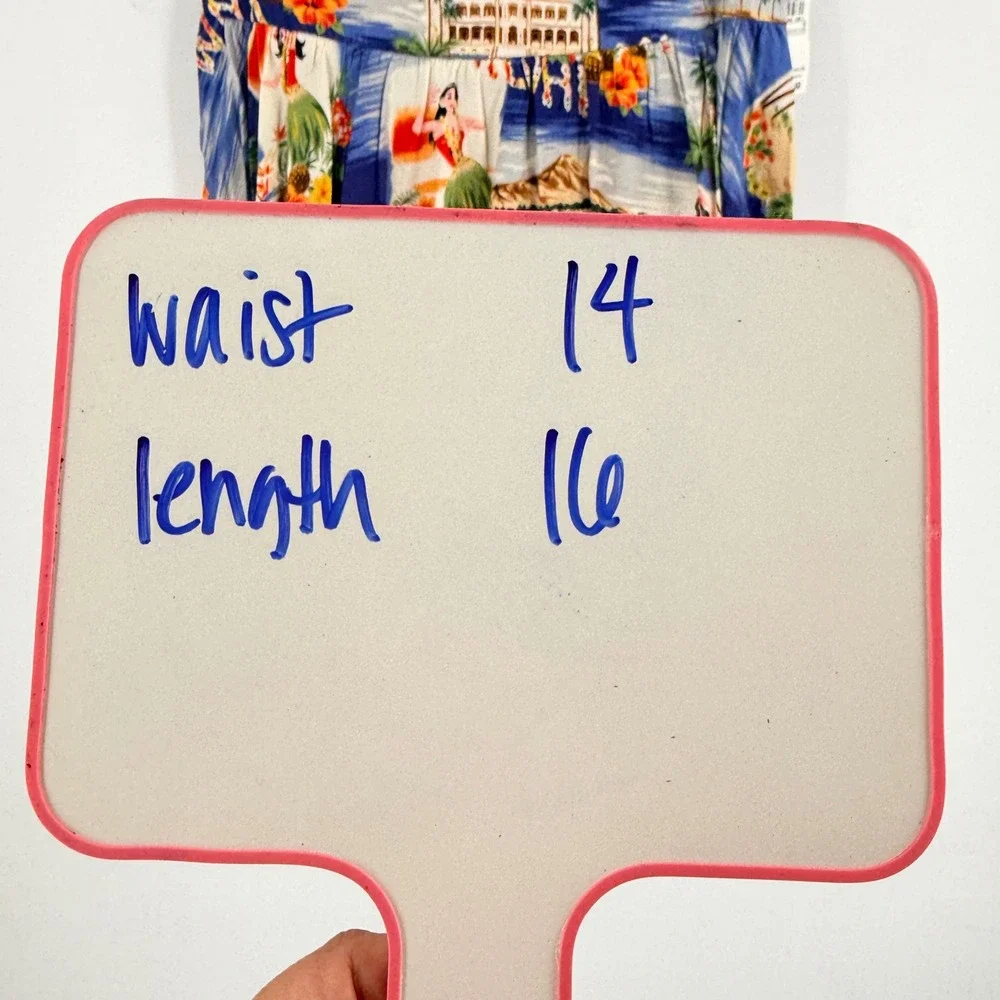 waist 14
length 16